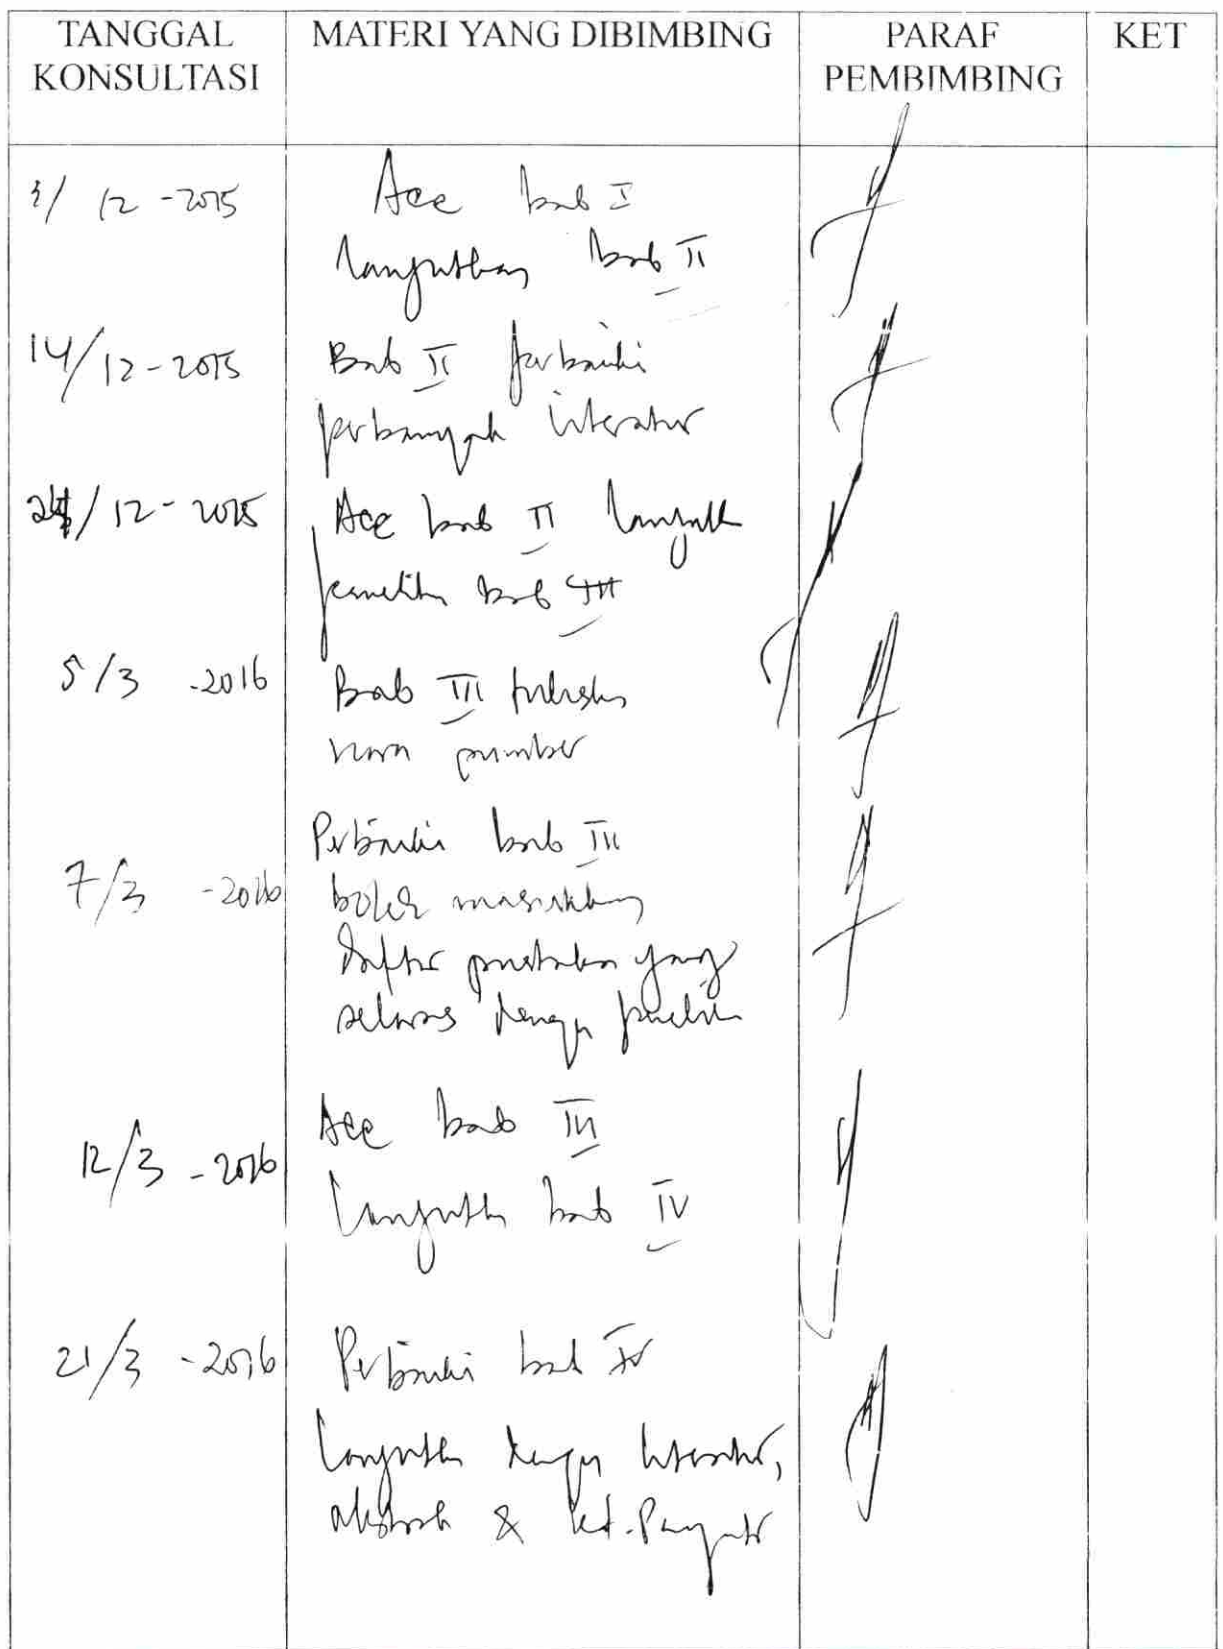 TANGGAL KONSULTASI MATERI YANG DIBIMBING PARAF PEMBIMBING KET
3/ 12 - 2015 Acc bab I
lanjutkan bab II
14/12 - 2015 Bab II perbaiki
perbanyak literatur
24/12 - 2015 Acc bab II lanjutk
penelitn bab III
5/3 - 2016 Bab III
nara sumber
Perbaiki bab III
7/3 - 2016 boleh masukkan
daftar pustaka yang
selaras dengan
Acc bab III
12/3 - 2016
lanjutkn bab IV
21/3 - 2016 Perbaiki bab IV
lanjutkn dengan literatur,
abstrak & kt. Pengantr